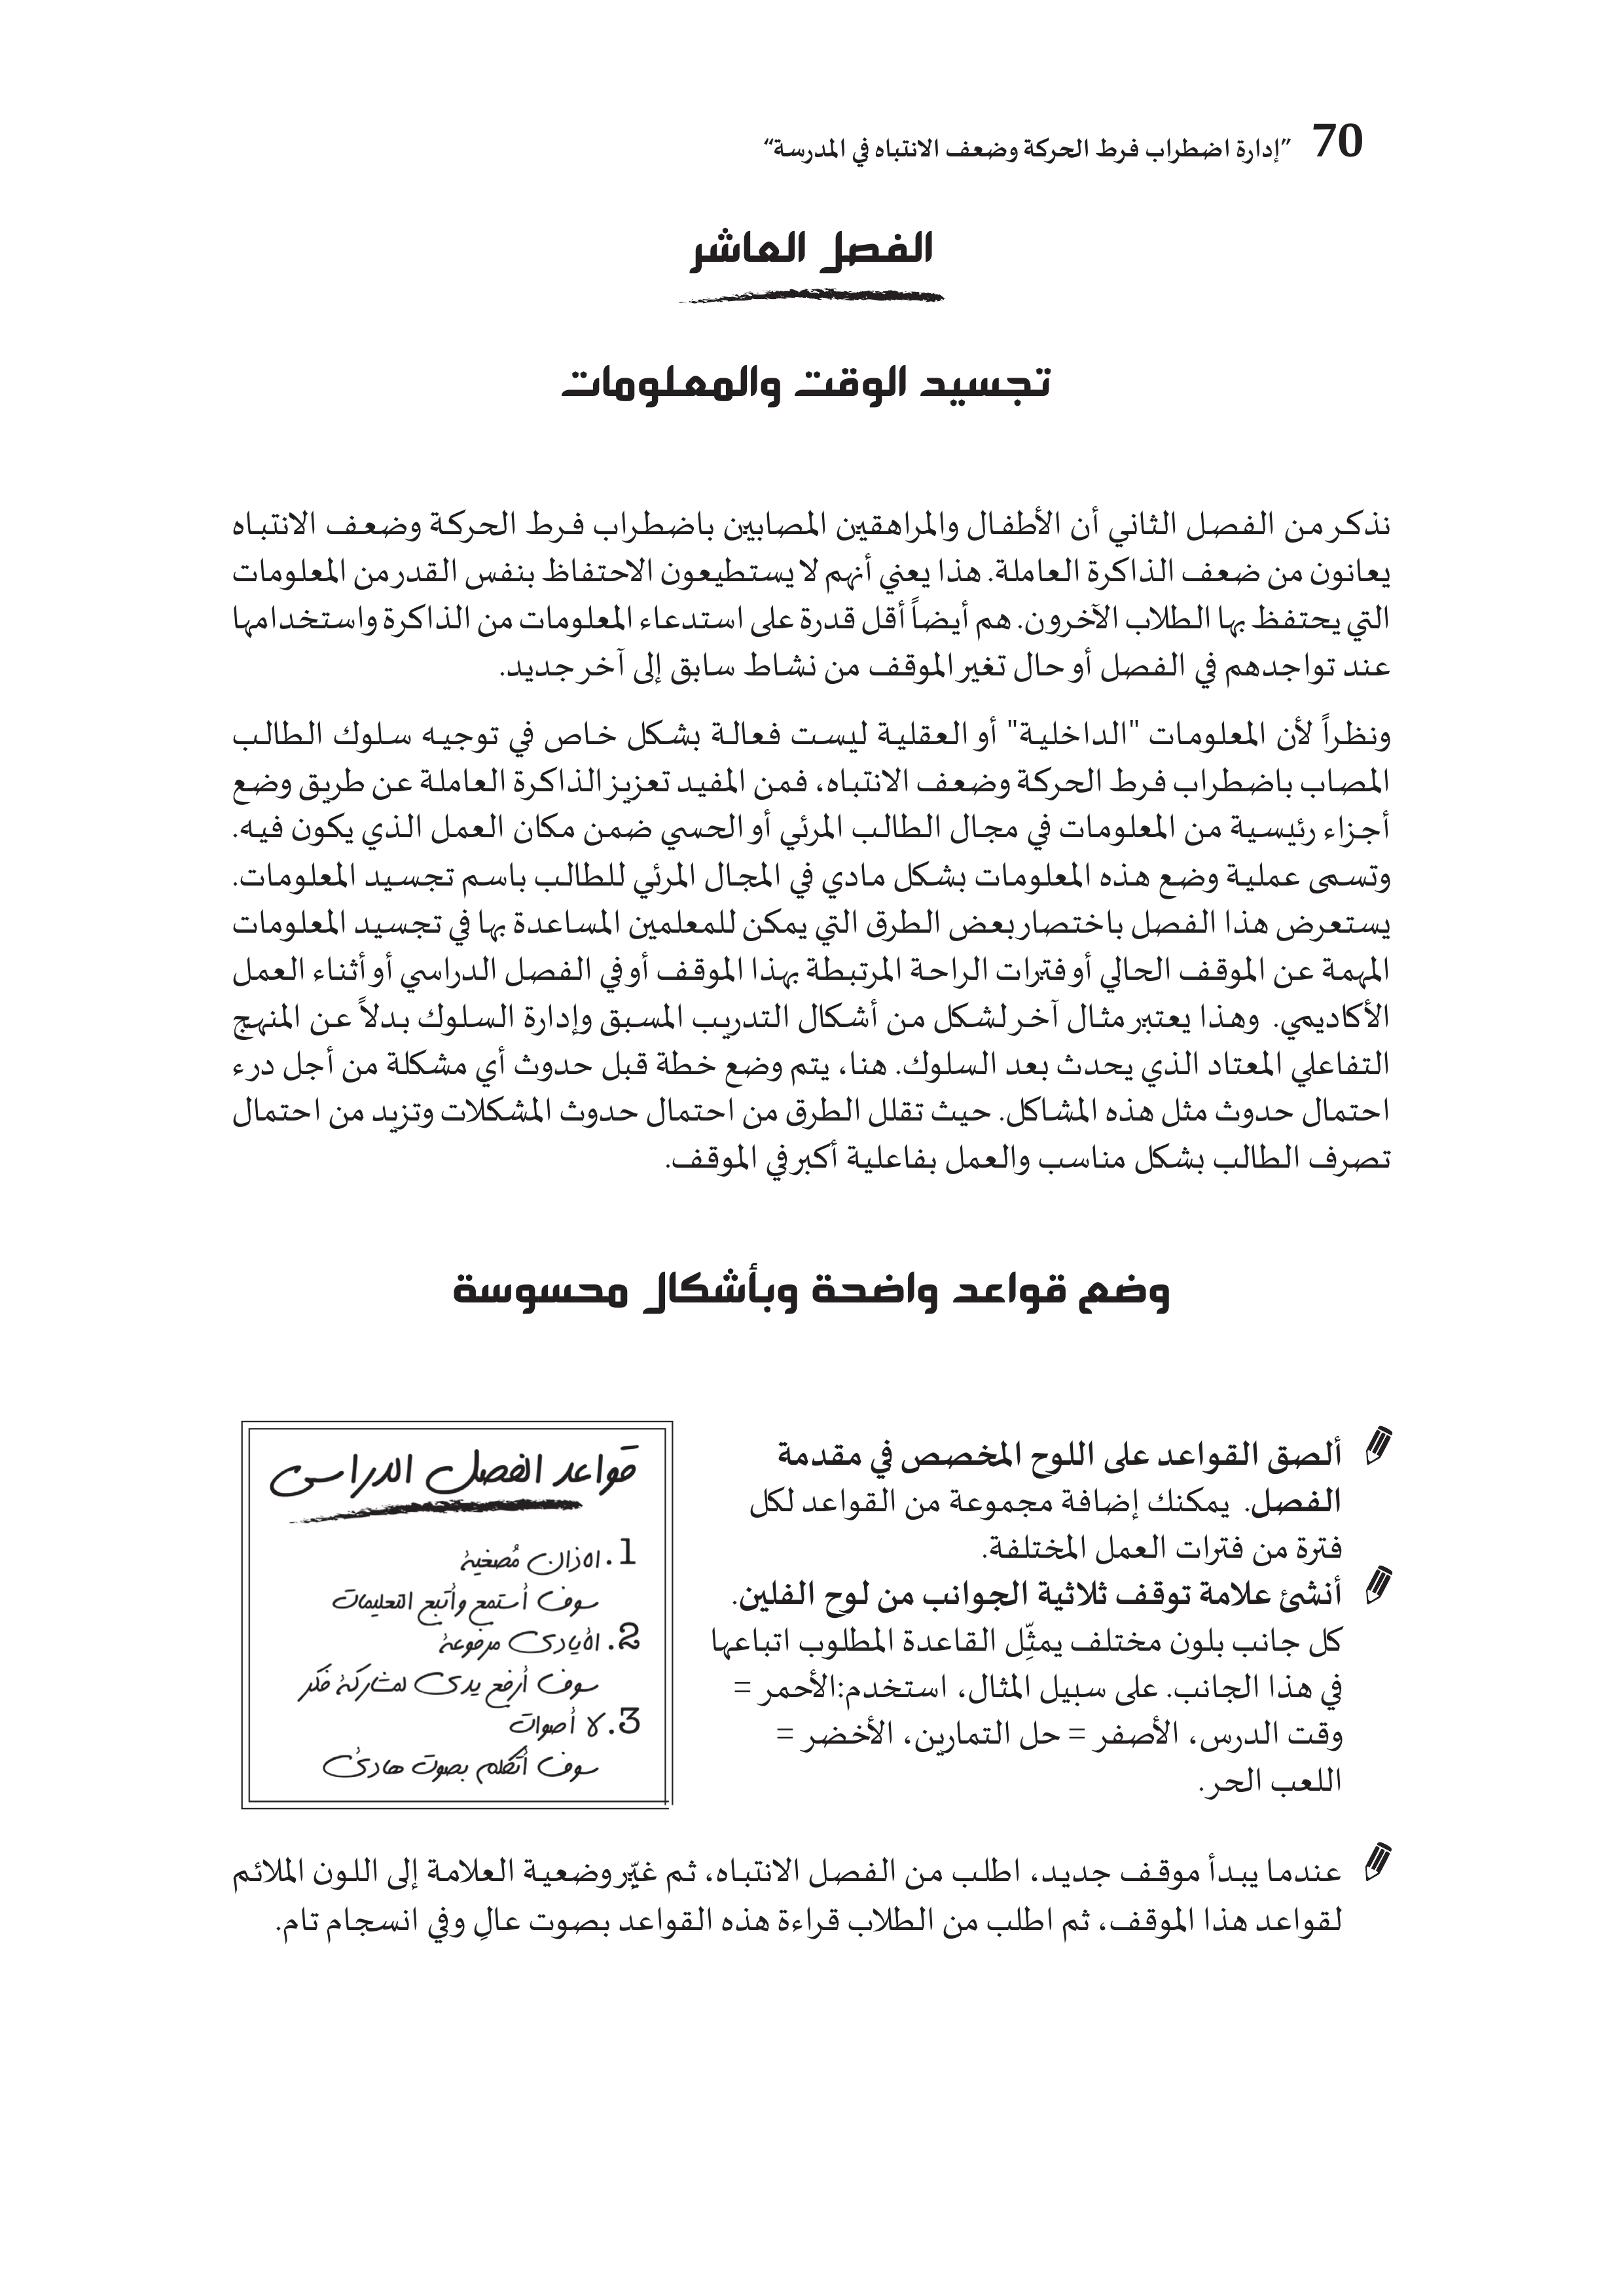 70 ”إدارة اضطراب فرط الحركة وضعف الانتباه في المدرسة“
الفصل العاشر
تجسيد الوقت والمعلومات
نذكر من الفصل الثاني أن الأطفال والمراهقين المصابين باضطراب فرط الحركة وضعف الانتباه
يعانون من ضعف الذاكرة العاملة. هذا يعني أنهم لا يستطيعون الاحتفاظ بنفس القدر من المعلومات
التي يحتفظ بها الطلاب الآخرون. هم أيضاً أقل قدرة على استدعاء المعلومات من الذاكرة واستخدامها
عند تواجدهم في الفصل أو حال تغير الموقف من نشاط سابق إلى آخر جديد.
ونظراً لأن المعلومات "الداخلية" أو العقلية ليست فعالة بشكل خاص في توجيه سلوك الطالب
المصاب باضطراب فرط الحركة وضعف الانتباه، فمن المفيد تعزيز الذاكرة العاملة عن طريق وضع
أجزاء رئيسية من المعلومات في مجال الطالب المرئي أو الحسي ضمن مكان العمل الذي يكون فيه.
وتسمى عملية وضع هذه المعلومات بشكل مادي في المجال المرئي للطالب باسم تجسيد المعلومات.
يستعرض هذا الفصل باختصار بعض الطرق التي يمكن للمعلمين المساعدة بها في تجسيد المعلومات
المهمة عن الموقف الحالي أو فترات الراحة المرتبطة بهذا الموقف أو في الفصل الدراسي أو أثناء العمل
الأكاديمي. وهذا يعتبر مثال آخر لشكل من أشكال التدريب المسبق وإدارة السلوك بدلاً عن المنهج
التفاعلي المعتاد الذي يحدث بعد السلوك. هنا، يتم وضع خطة قبل حدوث أي مشكلة من أجل درء
احتمال حدوث مثل هذه المشاكل. حيث تقلل الطرق من احتمال حدوث المشكلات وتزيد من احتمال
تصرف الطالب بشكل مناسب والعمل بفاعلية أكبر في الموقف.
وضع قواعد واضحة وبأشكال محسوسة
ألصق القواعد على اللوح المخصص في مقدمة
الفصل. يمكنك إضافة مجموعة من القواعد لكل
فترة من فترات العمل المختلفة.
أنشئ علامة توقف ثلاثية الجوانب من لوح الفلين.
كل جانب بلون مختلف يمثِّل القاعدة المطلوب اتباعها
في هذا الجانب. على سبيل المثال، استخدم:الأحمر =
وقت الدرس، الأصفر = حل التمارين، الأخضر =
اللعب الحر.
قواعد الفصل الدراسى
1. الاذان مُصغية
سوف أستمع وأتبع التعليمات
2. الأيادى مرفوعة
سوف أرفع يدى لمشاركة فكر
3. لا أصوات
سوف أتكلم بصوت هادئ
عندما يبدأ موقف جديد، اطلب من الفصل الانتباه، ثم غيِّر وضعية العلامة إلى اللون الملائم
لقواعد هذا الموقف، ثم اطلب من الطلاب قراءة هذه القواعد بصوت عالِ وفي انسجام تام.